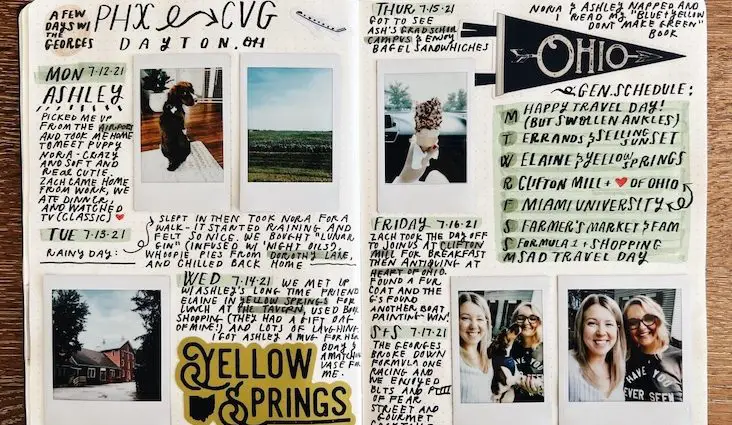 A FEW
DAYS W/
THE
GEORGES
PHX CVG
DAYTON, OH
MON 7-12-21
ASHLEY
PICKED ME UP
FROM THE AIRPORT
AND TOOK ME HOME
TO MEET PUPPY
NORA - CRAZY
AND SOFT AND
REAL CUTE.
ZACH CAME HOME
FROM WORK, WE
ATE DINNER,
AND WATCHED
TV (CLASSIC) ❤
TUE 7-13-21
RAINY DAY:
SLEPT IN THEN TOOK NORA FOR A
WALK - IT STARTED RAINING AND
FELT SO NICE. WE BOUGHT "LUNAR
GIN" (INFUSED W/ "NIGHT OILS"),
WHOOPIE PIES FROM DOROTHY LANE,
AND CHILLED BACK HOME
WED 7-14-21 WE MET UP
W/ ASHLEY'S LONG TIME FRIEND
ELAINE IN YELLOW SPRINGS FOR
LUNCH AT THE TAVERN, USED BOOK
SHOPPING (THEY HAD A GIFT DAY
OF MINE!) AND LOTS OF LAUGHING.
I GOT ASHLEY A MUG FOR HER
BDAY &
A MATCHING
VASE FOR
ME.
YELLOW
SPRINGS
THUR 7-15-21
GOT TO SEE
ASH'S GRAD SCHOOL
CAMPUS & ENJOY
BAGEL SANDWICHES
NORA & ASHLEY NAPPED AND
I READ MY "BLUE & YELLOW
DON'T MAKE GREEN"
BOOK
OHIO
GEN. SCHEDULE:
M HAPPY TRAVEL DAY!
(BUT SWOLLEN ANKLES)
T ERRANDS & SELLING
SUNSET
W ELAINE & YELLOW SPRINGS
R CLIFTON MILL + ❤ OF OHIO
F MIAMI UNIVERSITY
S FARMER'S MARKET & FAM
S FORMULA 1 + SHOPPING
M SAD TRAVEL DAY
FRIDAY 7-16-21
ZACH TOOK THE DAY OFF
TO JOIN US AT CLIFTON
MILL FOR BREAKFAST
THEN ANTIQUING AT
HEART OF OHIO.
FOUND A FUR
COAT AND THE
G'S FOUND
ANOTHER BOAT
PAINTING WIN!
S+S 7-17-21
THE GEORGES
BROKE DOWN
FORMULA ONE
RACING AND
WE ENJOYED
BLTS AND
OF FEAR
STREET AND
GOURMET
HAVE YOU
EVER SEEN